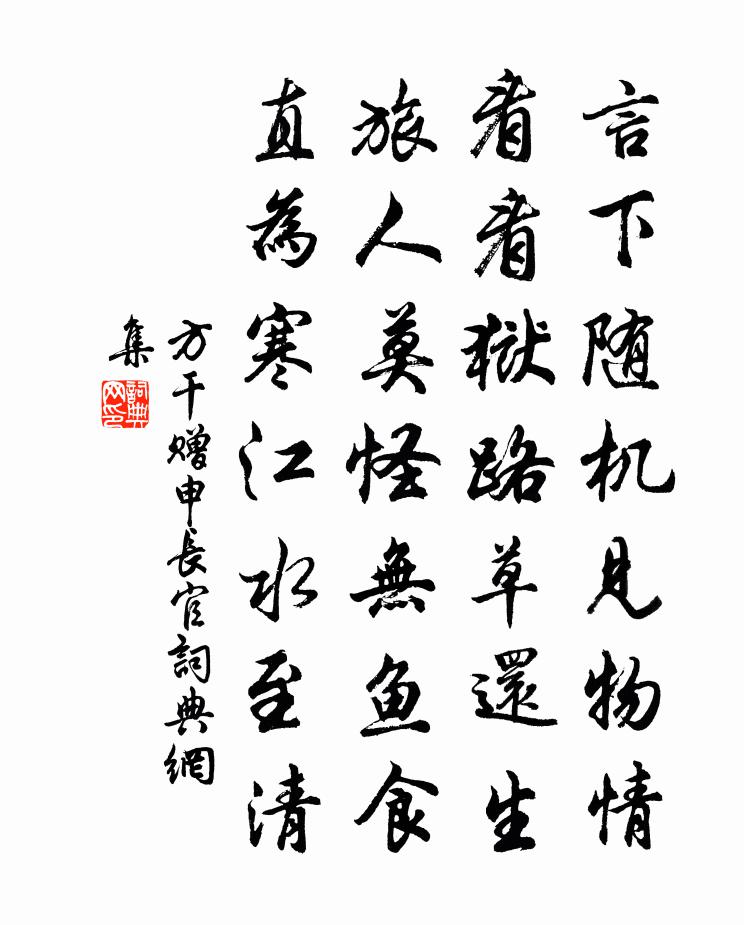 言下随机見物情
看看獄路草還生
旅人莫怪無鱼食
直為寒江水至清
方干赠申長官詞典網
集
詞典网印